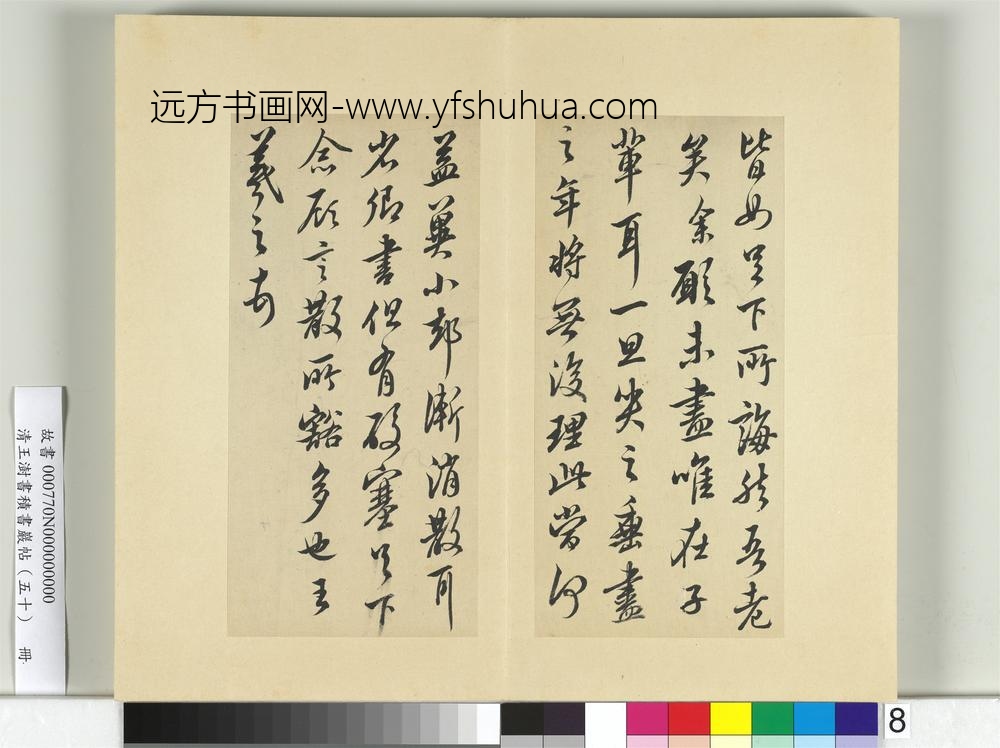 远方书画网-www.yfshuhua.com
皆如足下所誨然吾老
矣余願未盡唯在子
輩耳一旦哭之垂盡
之年將無復理此當何
益冀小却漸消散耳
省卿書但有酸塞足下
念顧言散所豁多也王
羲之頓
故書 000770N000000000
清王澍書積書巖帖（五十） 冊
8